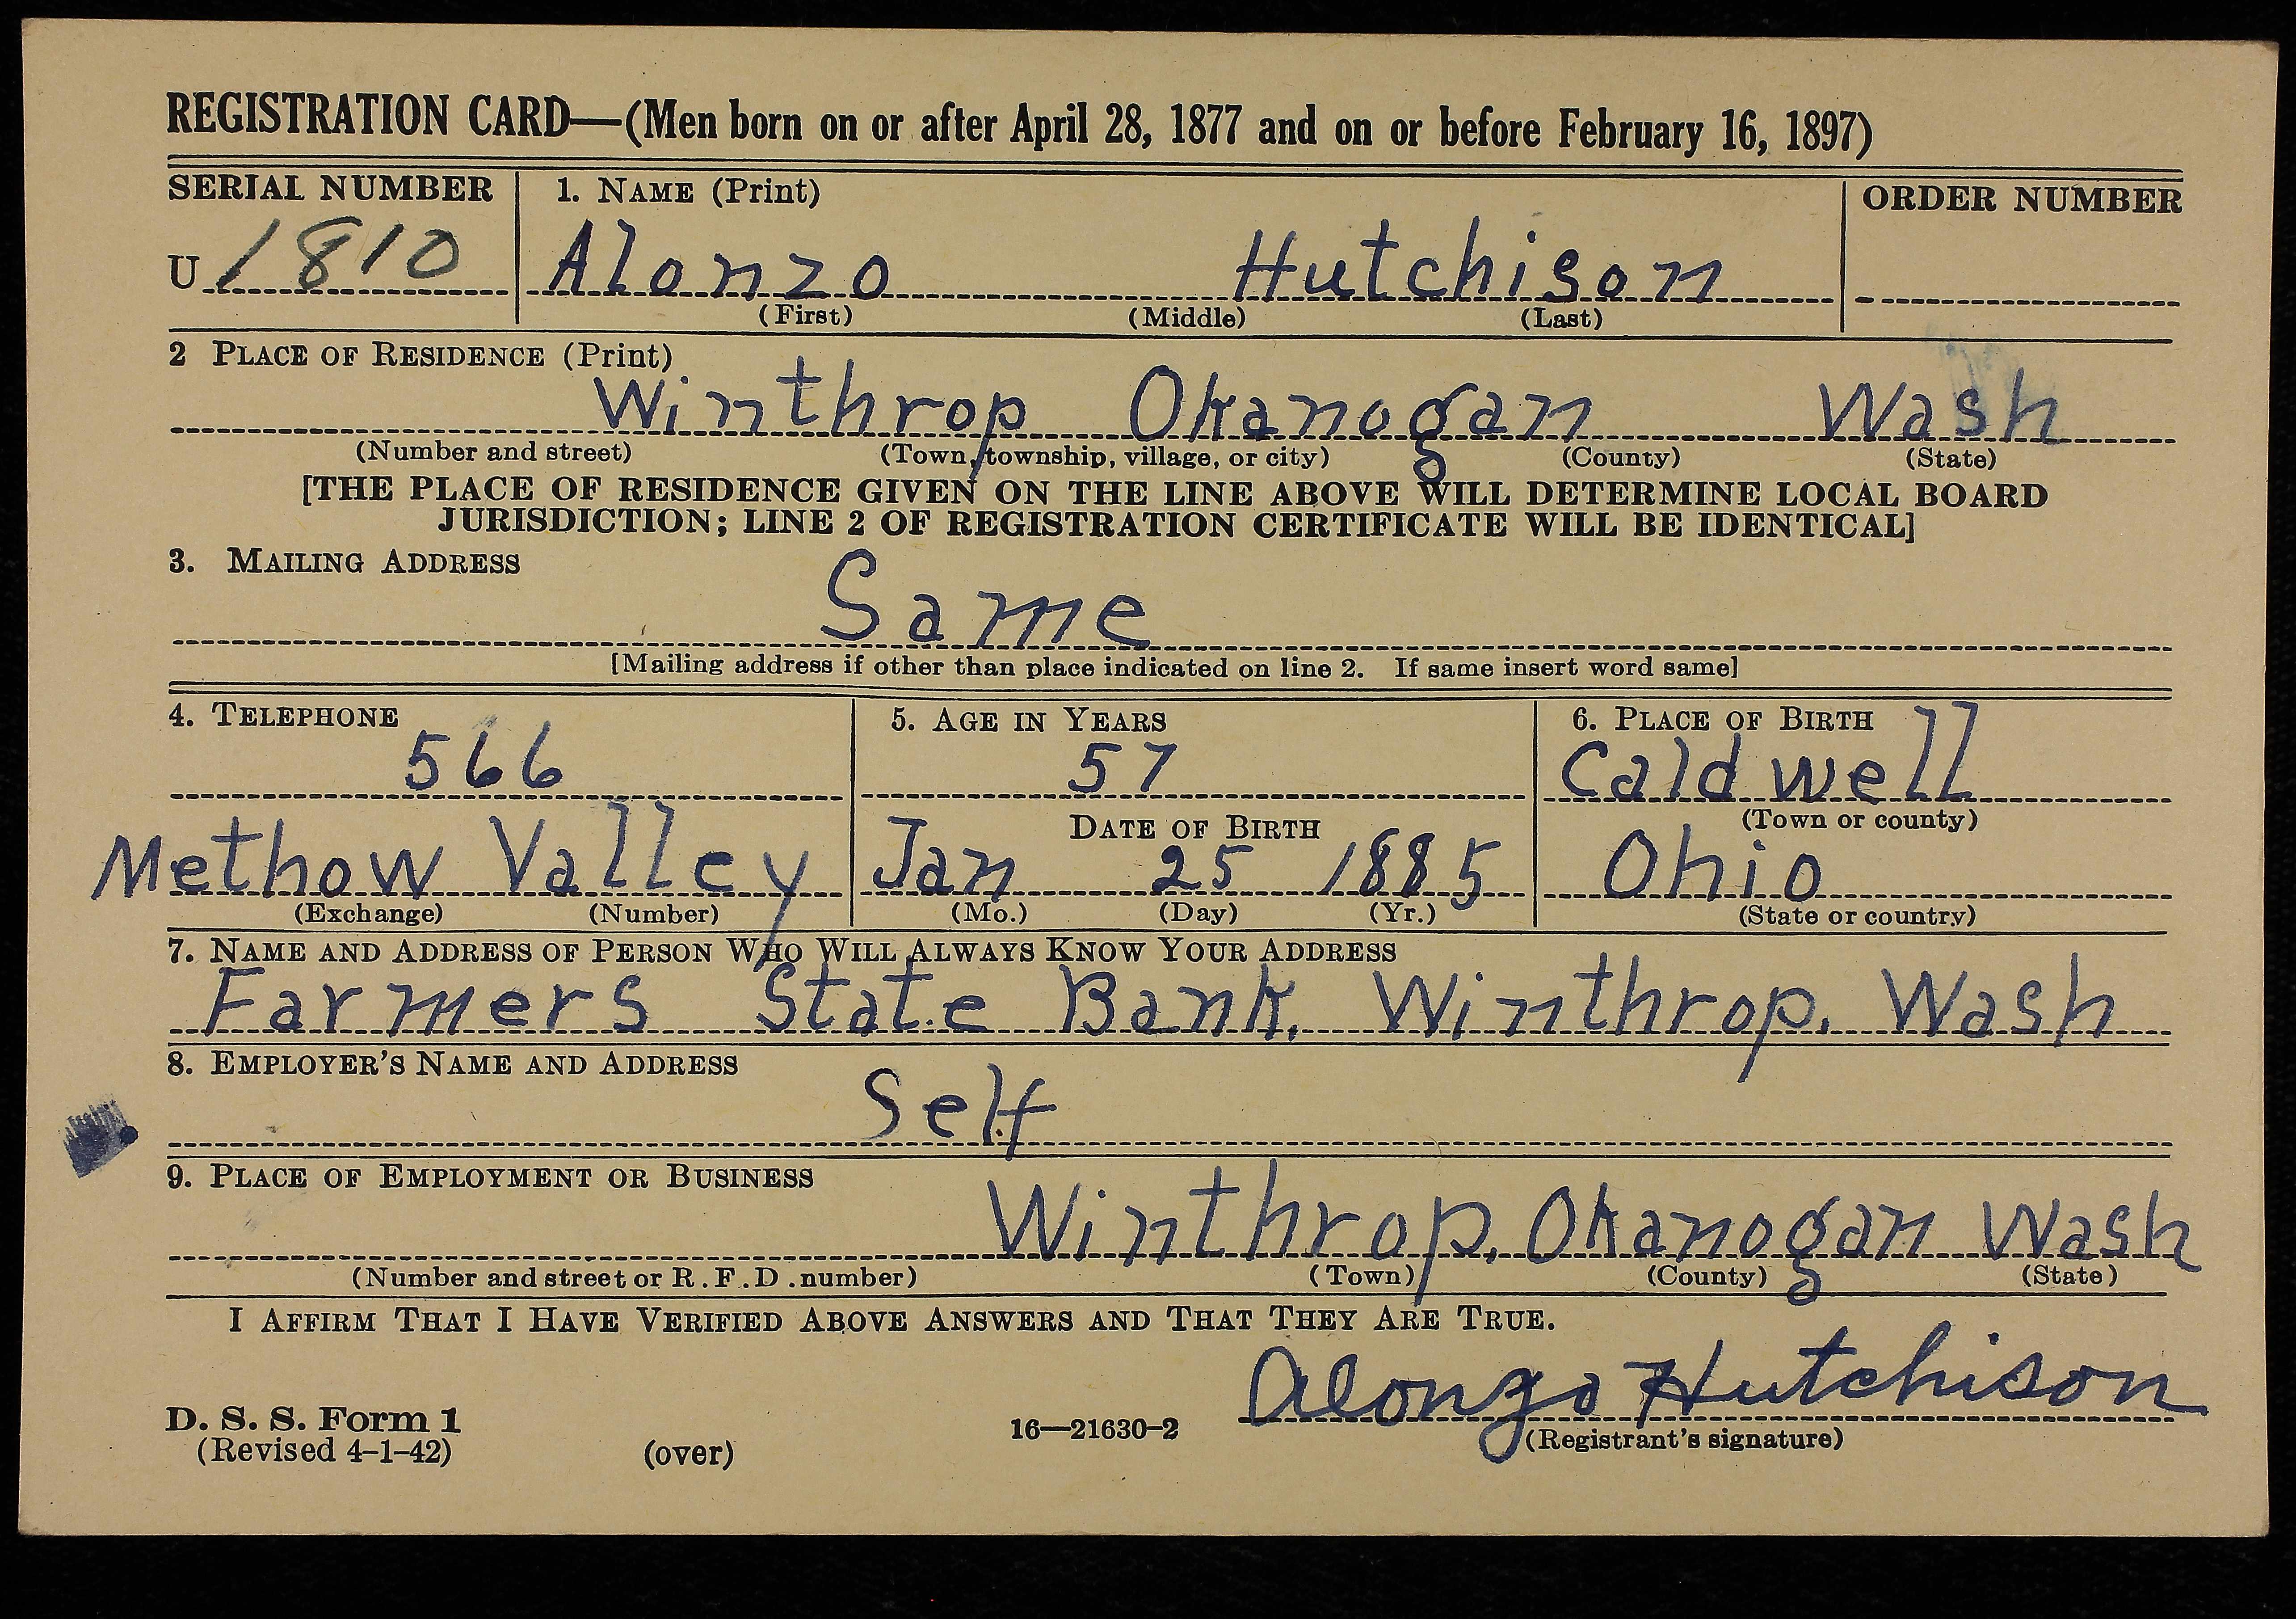 REGISTRATION CARD—(Men born on or after April 28, 1877 and on or before February 16, 1897)
SERIAL NUMBER 1. NAME (Print) ORDER NUMBER
U 1810 Alonzo Hutchison
(First) (Middle) (Last)
2 PLACE OF RESIDENCE (Print)
Winthrop Okanogan Wash
(Number and street) (Town, township, village, or city) (County) (State)
[THE PLACE OF RESIDENCE GIVEN ON THE LINE ABOVE WILL DETERMINE LOCAL BOARD
JURISDICTION; LINE 2 OF REGISTRATION CERTIFICATE WILL BE IDENTICAL]
3. MAILING ADDRESS
Same
[Mailing address if other than place indicated on line 2. If same insert word same]
4. TELEPHONE 5. AGE IN YEARS 6. PLACE OF BIRTH
566 57 Caldwell
DATE OF BIRTH (Town or county)
Methow Valley Jan 25 1885 Ohio
(Exchange) (Number) (Mo.) (Day) (Yr.) (State or country)
7. NAME AND ADDRESS OF PERSON WHO WILL ALWAYS KNOW YOUR ADDRESS
Farmers State Bank, Winthrop, Wash
8. EMPLOYER'S NAME AND ADDRESS
Self
9. PLACE OF EMPLOYMENT OR BUSINESS
Winthrop, Okanogan Wash
(Number and street or R.F.D. number) (Town) (County) (State)
I AFFIRM THAT I HAVE VERIFIED ABOVE ANSWERS AND THAT THEY ARE TRUE.
Alonzo Hutchison
D. S. S. Form 1
(Revised 4-1-42) (over) 16—21630-2 (Registrant's signature)